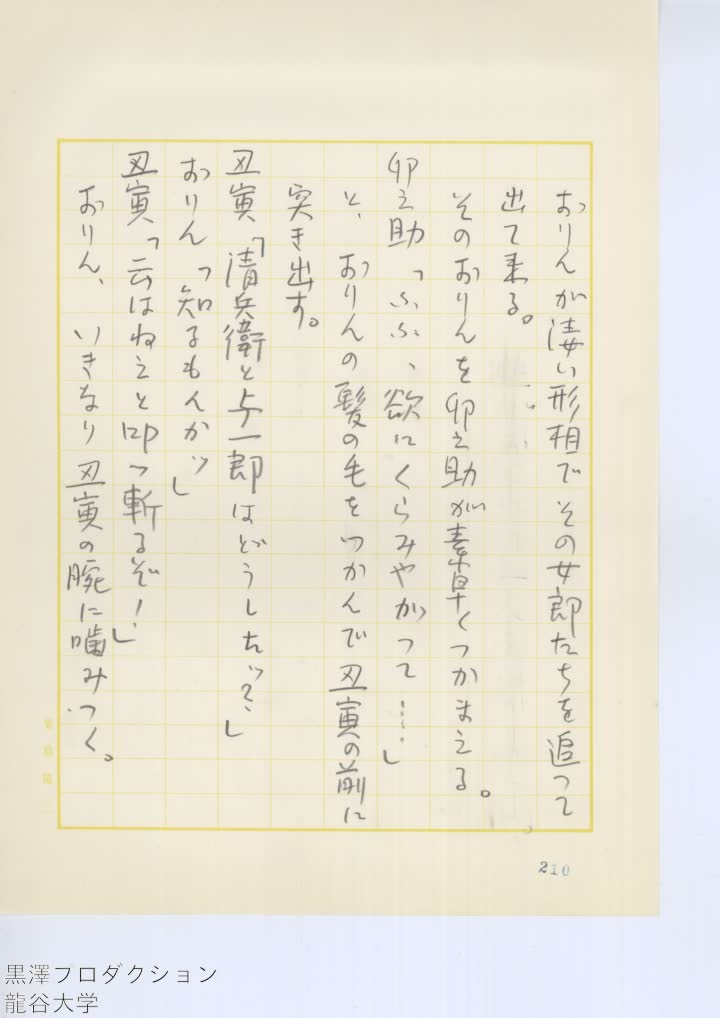 おりんが凄い形相でその女郎たちを追って
出て来る。
そのおりんを卯之助が素早くつかまえる。
卯之助「ふふ、欲にくらみやがって……」
と、おりんの髪の毛をつかんで丑寅の前に
突き出す。
丑寅「清兵衛と与一郎はどうしたッ？」
おりん「知るもんかッ」
丑寅「云はねえと叩っ斬るぞ！」
おりん、いきなり丑寅の腕に噛みつく。
210
黒澤プロダクション
龍谷大学